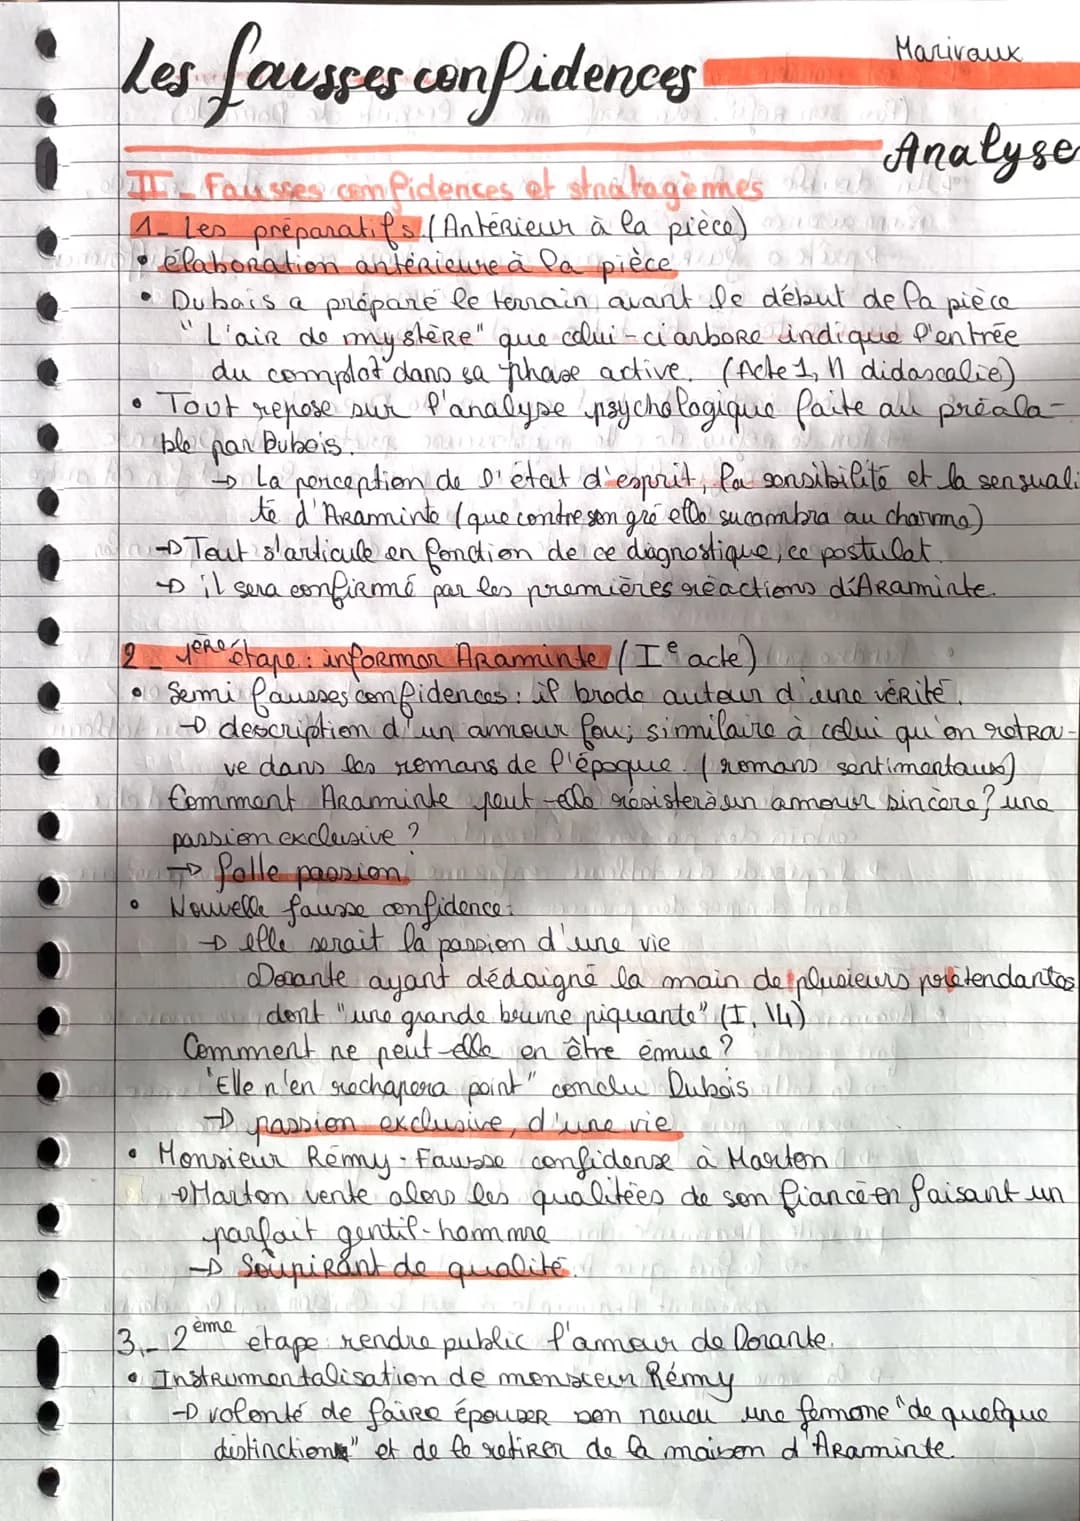 Marivaux
Les fausses confidences
Analyse
II - Fausses confidences et stratagèmes
1- Les préparatifs. (Antérieur à la pièce)
• élaboration antérieure à la pièce
• Dubois a préparé le terrain avant le début de la pièce
"L'air de mystère" que celui-ci arbore indique l'entrée
du complot dans sa phase active. (Acte 1, didascalie)
• Tout repose sur l'analyse psychologique faite au préala-
ble par Dubois.
→ La perception de l'état d'esprit, la sensibilité et la sensuali-
té d'Araminte (que contre son gré elle sucombra au charme)
→ Tout s'articule en fonction de ce diagnostique, ce postulat.
→ il sera confirmé par les premières réactions d'Araminte.
2 - 1ère étape : informer Araminte (Ie acte)
• Semi fausses confidences : il brode autour d'une vérité.
→ description d'un amour fou; similaire à celui qu'on retrou-
ve dans les romans de l'époque. (romans sentimentaux)
Comment Araminte peut-elle résister à un amour sincère? une
passion exclusive ?
→ folle passion.
• Nouvelle fausse confidence:
→ elle serait la passion d'une vie
Dorante ayant dédaigné la main de plusieurs prétendantes
dont "une grande brune piquante" (I, 14)
Comment ne peut-elle en être émue ?
"Elle n'en réchapera point" conclu Dubois
→ passion exclusive, d'une vie
• Monsieur Rémy - Fausse confidense à Marton
→ Marton vente alors les qualitées de son fiancé en faisant un
parfait gentil-homme
→ Soupirant de qualité.
3.- 2ème étape rendre public l'amour de Dorante.
• Instrumentalisation de monsieur Rémy
→ volonté de faire épouser son neveu une femme "de quelque
distinction" et de le retirer de la maison d'Araminte.